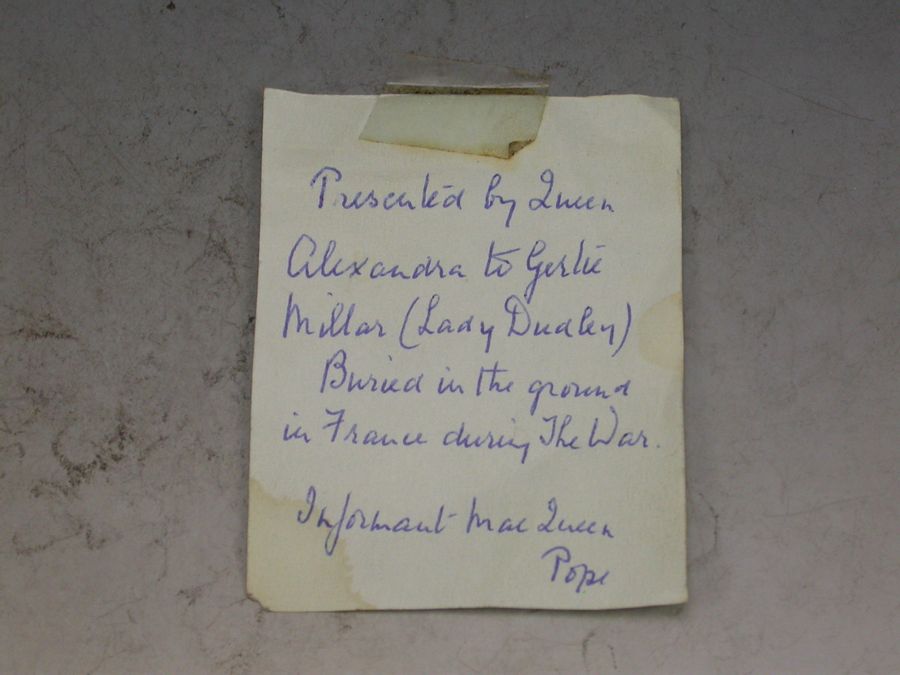 Presented by Queen
Alexandra to Gertie
Millar (Lady Dudley)
Buried in the ground
in France during The War.
Informant Mac Queen
Pope